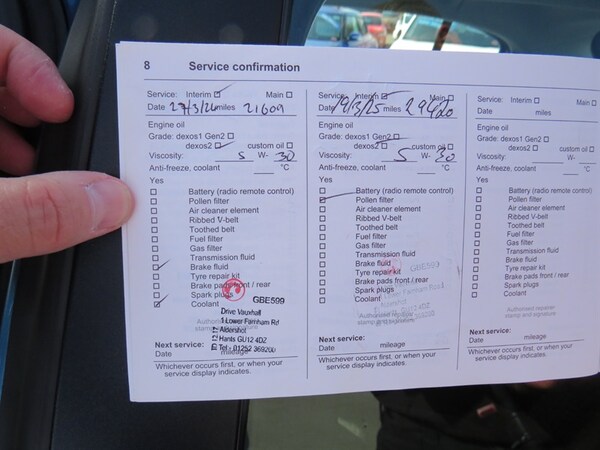 8 Service confirmation
Service: Interim Main
Date 27/3/24 miles 21609
Engine oil
Grade: dexos1 Gen2
dexos2 custom oil
Viscosity: 5 W- 30
Anti-freeze, coolant °C
Yes
Battery (radio remote control)
Pollen filter
Air cleaner element
Ribbed V-belt
Toothed belt
Fuel filter
Gas filter
Transmission fluid
Brake fluid
Tyre repair kit
Brake pads front / rear
Spark plugs
Coolant
GBE599
Drive Vauxhall
1 Lower Farnham Rd
Aldershot
Hants GU12 4DZ
Tel: 01252 369200
Authorised
stamp and signature
Next service:
Date mileage
Whichever occurs first, or when your
service display indicates.
Service: Interim Main
Date 19/3/25 miles
Engine oil
Grade: dexos1 Gen2
dexos2 custom oil
Viscosity: 5 W- 30
Anti-freeze, coolant °C
Yes
Battery (radio remote control)
Pollen filter
Air cleaner element
Ribbed V-belt
Toothed belt
Fuel filter
Gas filter
Transmission fluid
Brake fluid
Tyre repair kit
Brake pads front / rear
Spark plugs
Coolant
GBE599
Authorised repairer
stamp and signature
Next service:
Date mileage
Whichever occurs first, or when your
service display indicates.
Service: Interim Main
Date miles
Engine oil
Grade: dexos1 Gen2
dexos2 custom oil
Viscosity: W-
Anti-freeze, coolant °C
Yes
Battery (radio remote control)
Pollen filter
Air cleaner element
Ribbed V-belt
Toothed belt
Fuel filter
Gas filter
Transmission fluid
Brake fluid
Tyre repair kit
Brake pads front / rear
Spark plugs
Coolant
Authorised repairer
stamp and signature
Next service:
Date mileage
Whichever occurs first, or when your
service display indicates.